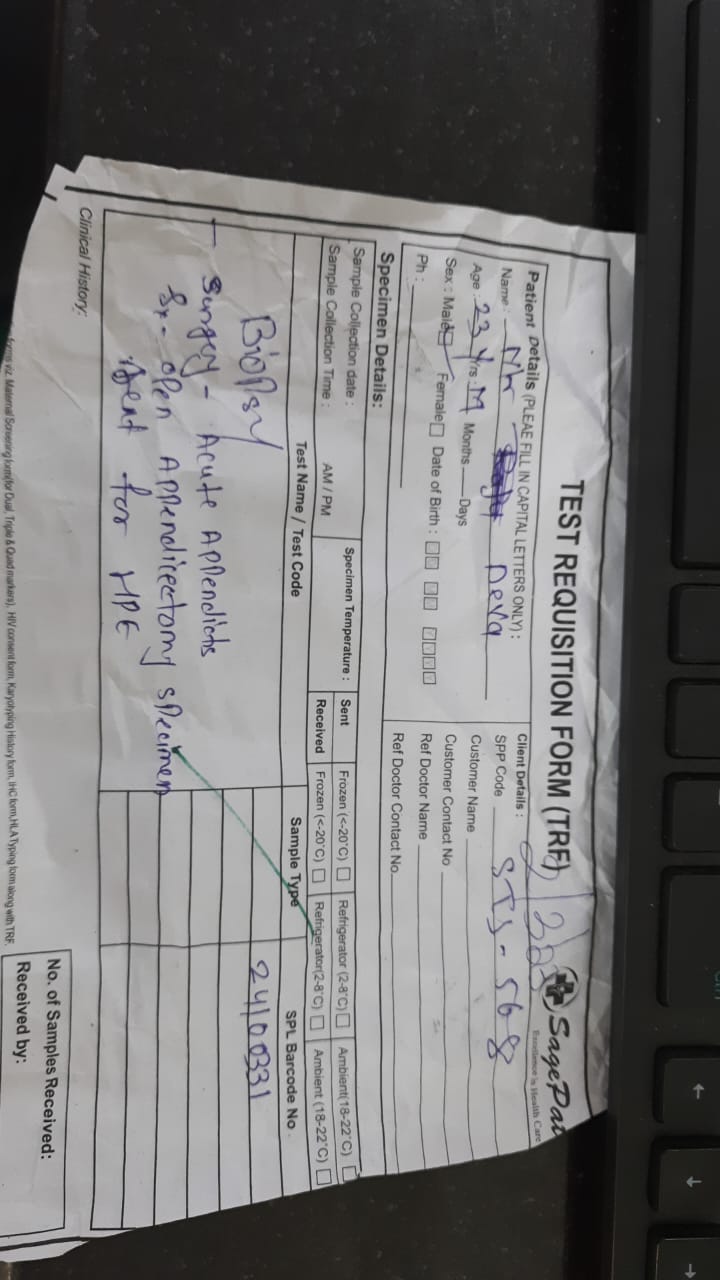 TEST REQUISITION FORM (TRF)
SagePat
Excellence in Health Care
Patient Details (PLEAE FILL IN CAPITAL LETTERS ONLY) :
Name : Mr Deva
Age : 23 Yrs : M Months Days
Sex : Male Female Date of Birth :
Ph :
Client Details :
SPP Code STS - 568
Customer Name
Customer Contact No
Ref Doctor Name
Ref Doctor Contact No.
Specimen Details:
Sample Collection date :
Sample Collection Time : AM / PM
Specimen Temperature :
Sent Frozen (<-20°C) Refrigerator (2-8°C) Ambient(18-22°C)
Received Frozen (<-20°C) Refrigerator(2-8°C) Ambient (18-22°C)
Test Name / Test Code Sample Type SPL Barcode No
Biopsy 24100331
- Surgery - Acute Appendicits
open Appendicectomy specimen
sent for HPE
Clinical History:
forms viz. Maternal Screening form(for Dual, Triple & Quad markers), HIV consent form, Karyotyping History form, IHC form,HLA Typing form along with TRF.
No. of Samples Received:
Received by: